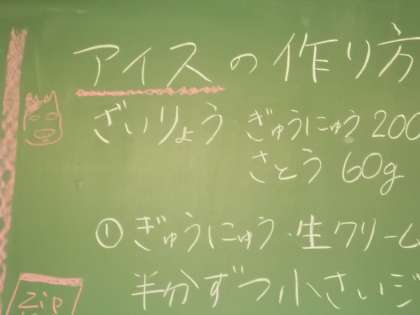 アイスの作り方
ざいりょう ぎゅうにゅう 200
さとう 60g
① ぎゅうにゅう・生クリーム
半分ずつ小さいジ
Zip